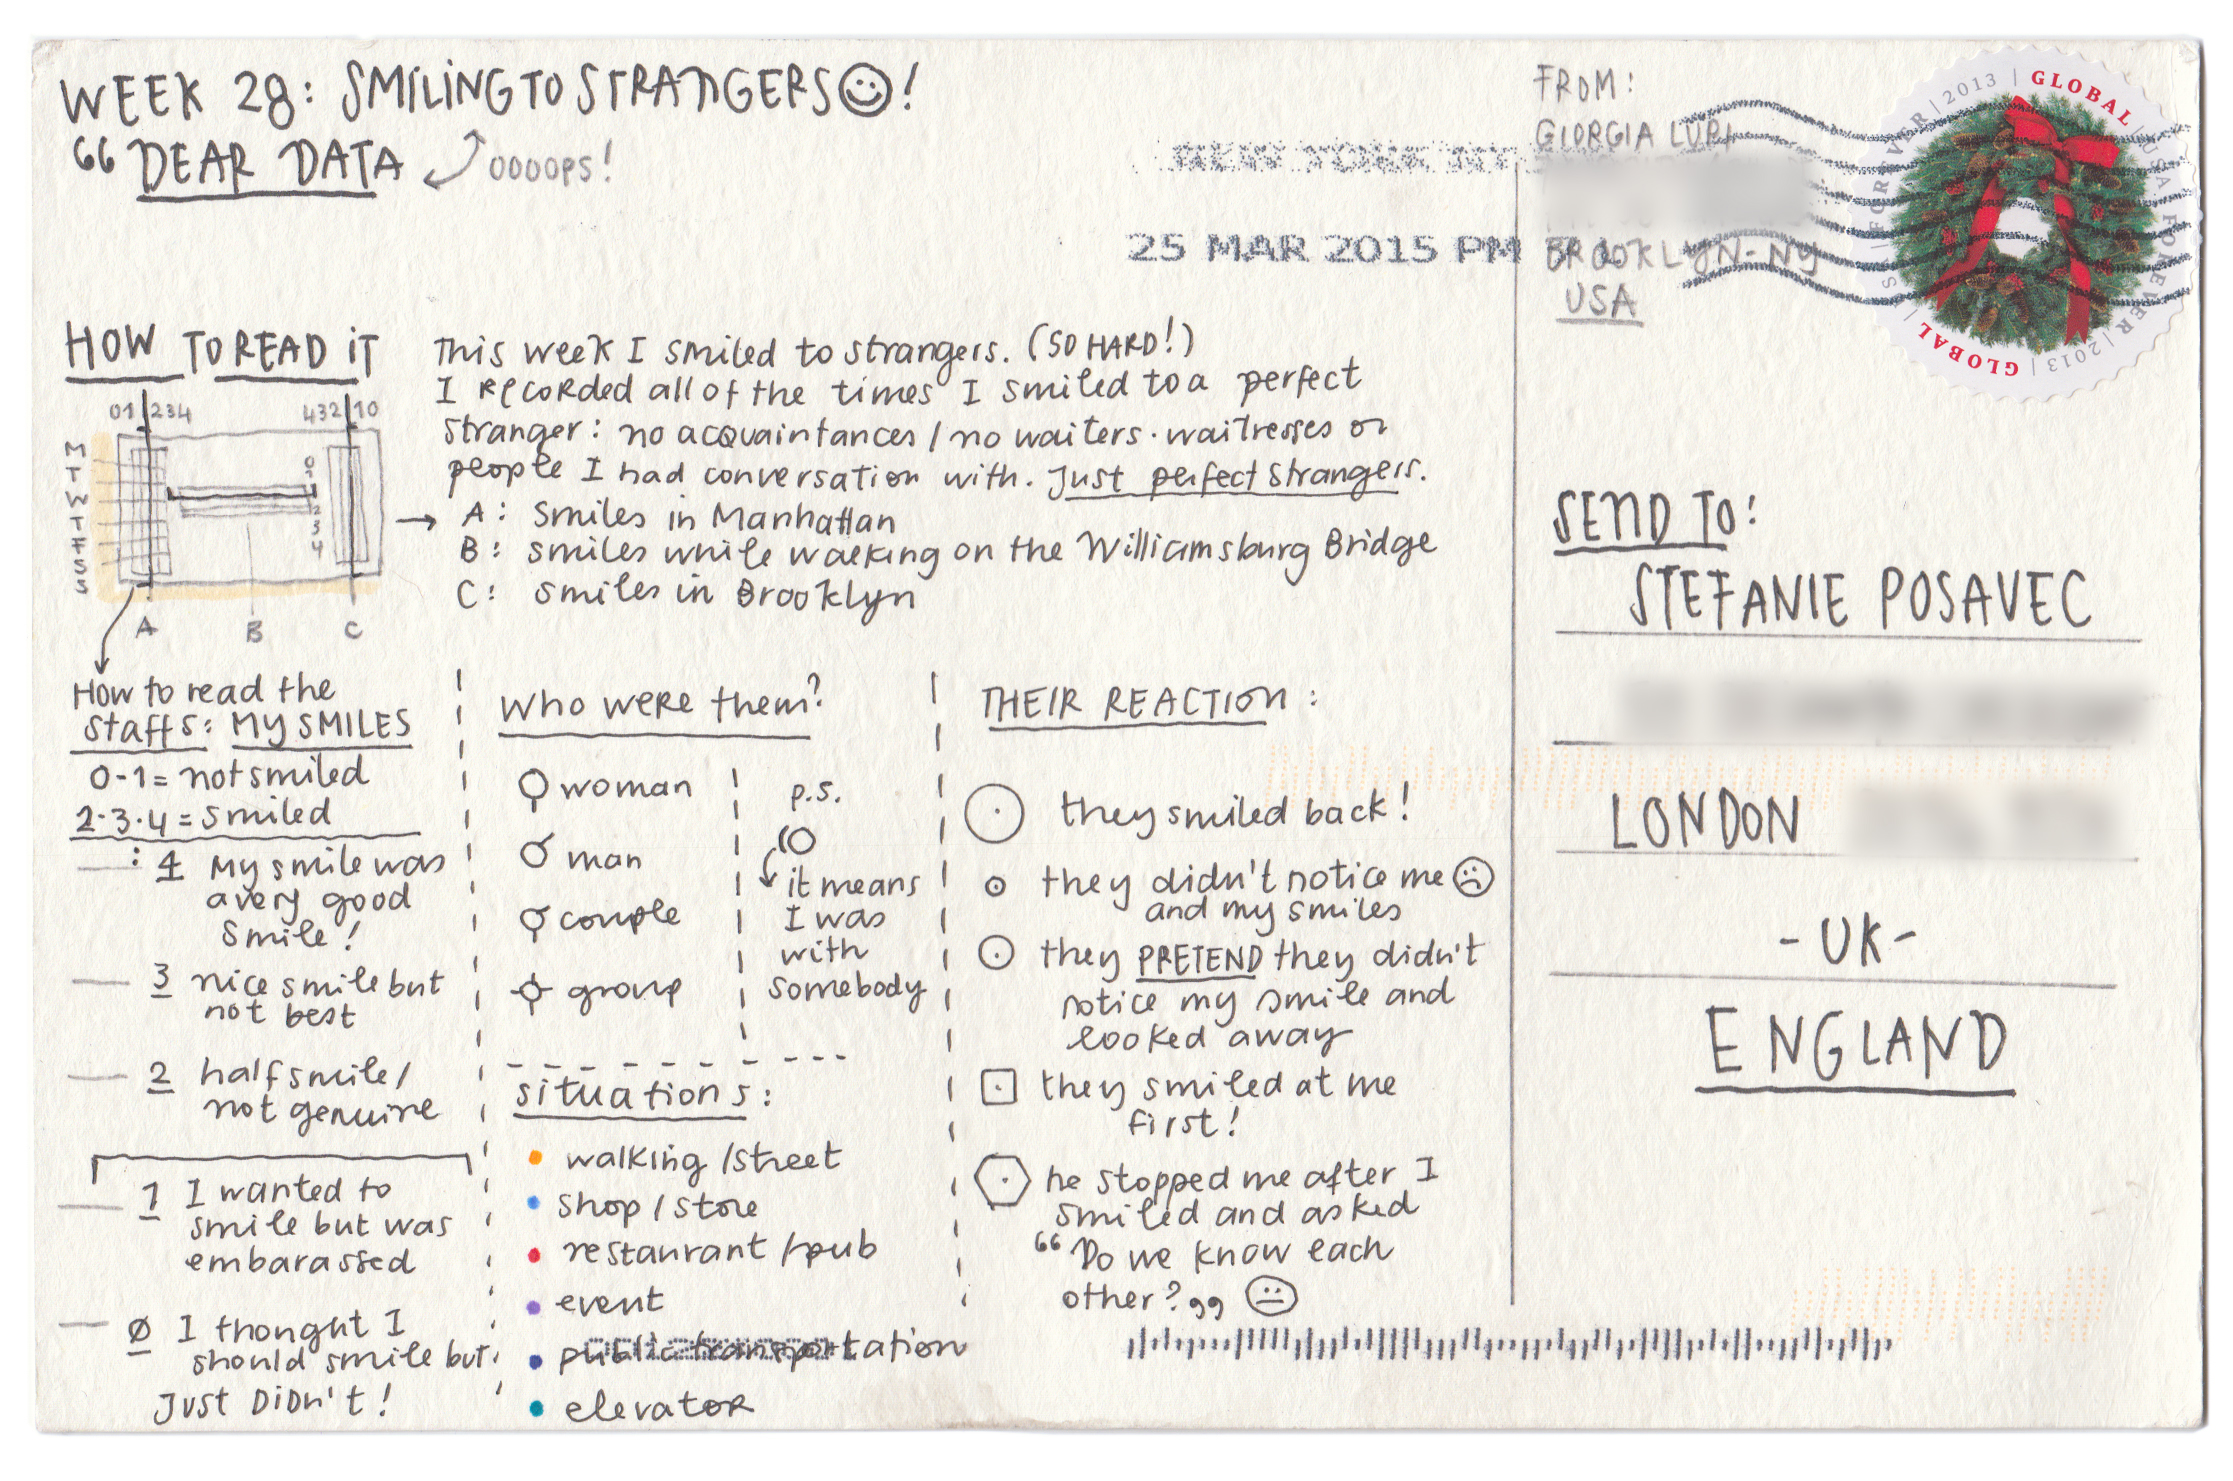 WEEK 28: SMILING TO STRANGERS☺!
“ DEAR DATA
OOOOPS!
HOW TO READ IT
01 234
432 10
M
T
W
T
F
S
S
0
1
2
3
4
A
B
C
This week I smiled to strangers. (SO HARD!)
I recorded all of the times I smiled to a perfect
stranger: no acquaintances / no waiters . waitresses or
people I had conversation with. Just perfect strangers.
→ A: smiles in Manhattan
B: smiles while walking on the Williamsburg Bridge
C: smiles in Brooklyn
How to read the
staffs: MY SMILES
0-1 = not smiled
2·3·4 = smiled
: 4 My smile was
a very good
smile!
3 nice smile but
not best
2 half smile /
not genuine
1 I wanted to
smile but was
embarassed
Ø I thought I
should smile but
JUST DIDN't!
Who were them?
woman
man
couple
group
p.s.
it means
I was
with
somebody
situations:
walking / street
shop / store
restaurant / pub
event
public transportation
elevator
THEIR REACTION:
they smiled back!
they didn't notice me ☹
and my smiles
they PRETEND they didn't
notice my smile and
looked away
they smiled at me
first!
he stopped me after I
smiled and asked
“ Do we know each
other? ”
NEW YORK NY
25 MAR 2015 PM
FROM:
GIORGIA LUPI
BROOKLYN-NY
USA
GLOBAL | USA FOREVER | 2013 | GLOBAL | USA FOREVER | 2013 |
SEND TO:
STEFANIE POSAVEC
LONDON
-UK-
ENGLAND